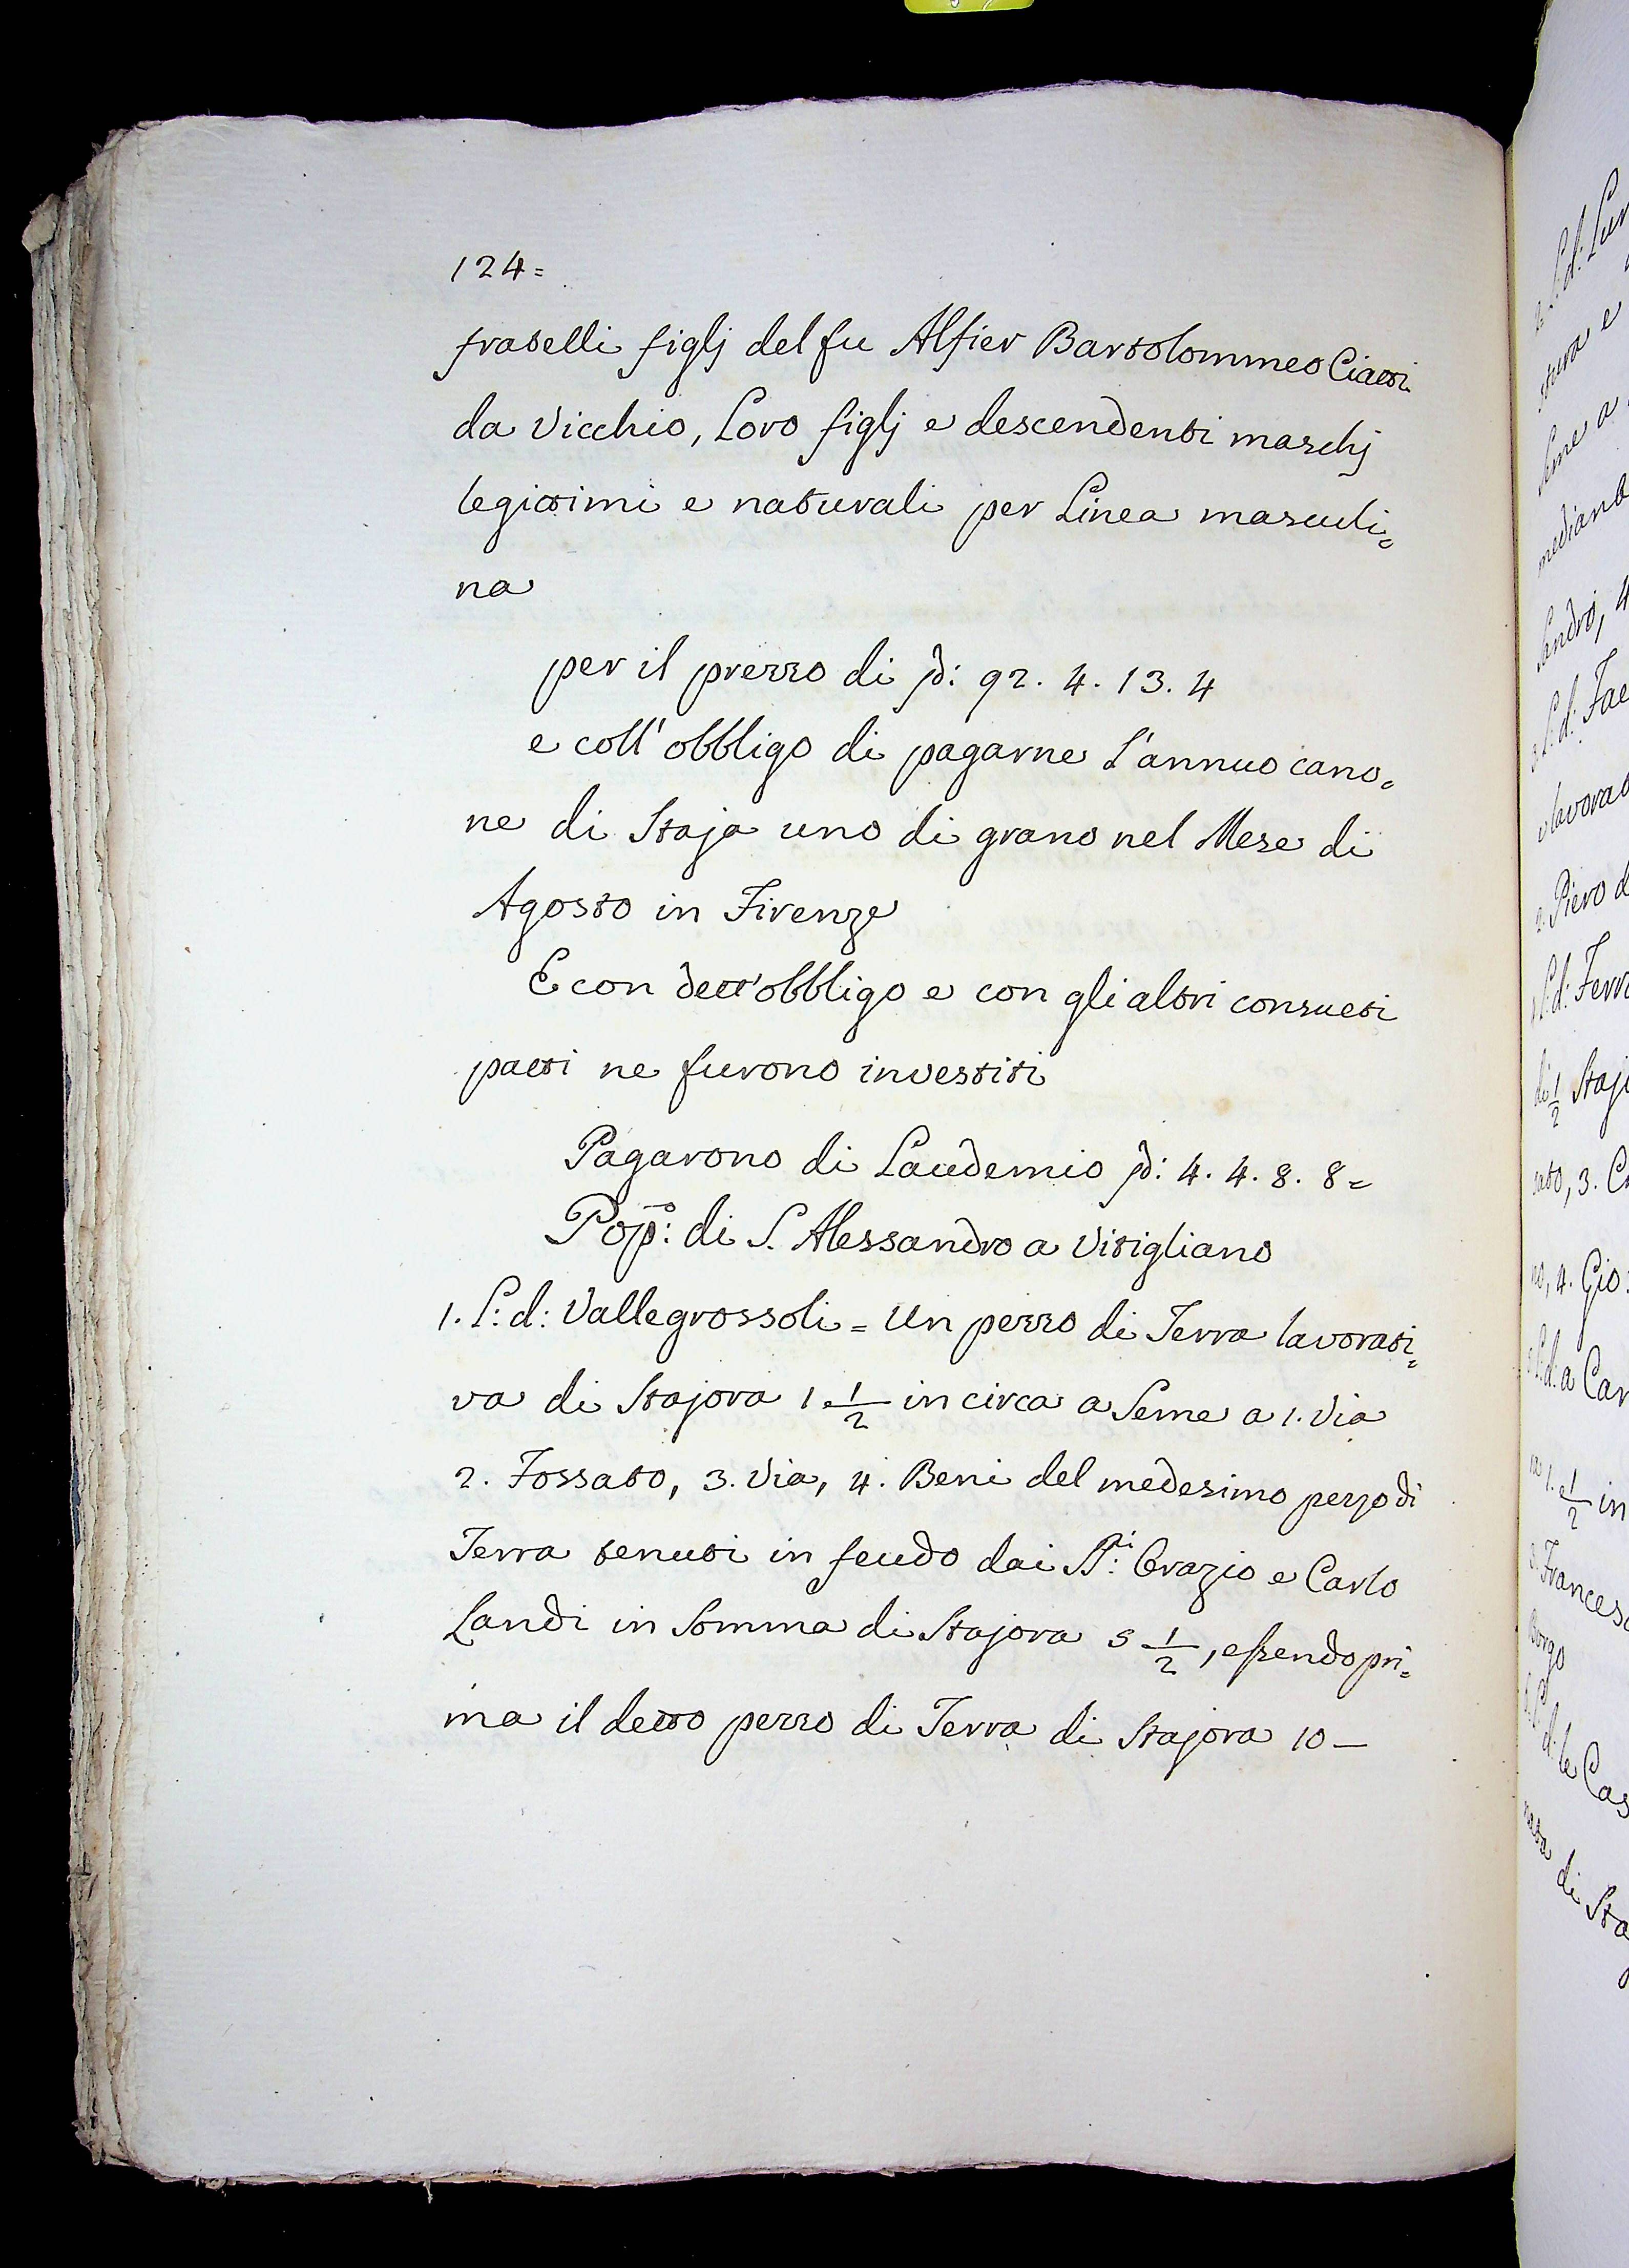 124=
fratelli figlj del fu Alfier Bartolommeo Ciatti
da Vicchio, Loro figlj e descendenti maschj
legittimi e naturali per Linea masculi=
na
per il prezzo di 92. 4. 13. 4
e coll' obbligo di pagarne L'annuo cano=
ne di Staja uno di grano nel Mese di
Agosto in Firenze
E con dett'obbligo e con gli altri consueti
patti ne furono investiti
Pagarono di Laudemio 4. 4. 8. 8=
Pop̃: di S. Alessandro a Vitigliano
1. L: d: Vallegrossoli = Un pezzo di Terra lavorati=
va di Stajora 1 1/2 in circa a Seme a 1. Via
2. Fossato, 3. Via, 4. Beni del medesimo pezzo di
Terra tenuti in feudo dai SS.i: Orazio e Carlo
Landi in Somma di Stajora 5 1/2, essendo pri=
ma il detto pezzo di Terra di Stajora 10 —